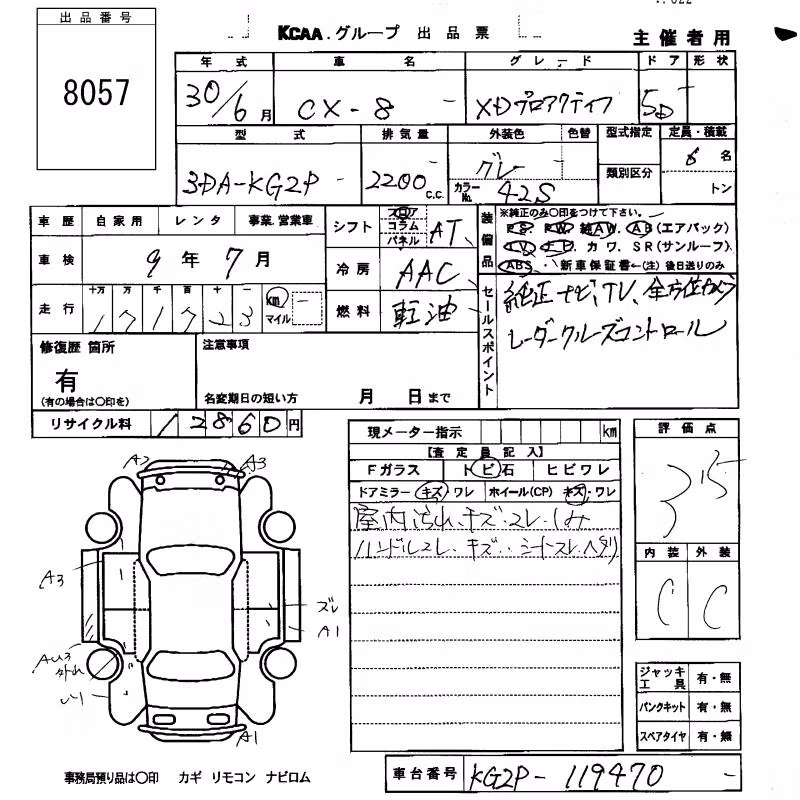 出品番号
8057
KCAA.グループ 出品票
主催者用
年式 車名 グレード ドア 形状
30/6月 CX-8 XDプロアクティブ 5D
型式 排気量 外装色 色替 型式指定 定員・積載
3DA-KG2P 2200 C.C. グレー カラーNo. 42S 類別区分 6名 トン
車歴 自家用 レンタ 事業.営業車
車検 9年7月
走行 十万 万 千 百 十 一
171723 km マイル
シフト フロア コラム パネル AT
冷房 AAC
燃料 軽油
装備品 ※純正のみ〇印をつけて下さい。
PS PW 純AW. AB(エアバック)
TV ナビ カワ. SR(サンルーフ)
ABS 新車保証書←(注)後日送りのみ
セールスポイント
純正ナビ、TV、全方位カメラ
レーダークルーズコントロール
修復歴 箇所
有
(有の場合は〇印を)
注意事項
名変期日の短い方 月 日まで
リサイクル料 12860円
現メーター指示 km
【査定員記入】
Fガラス トビ石 ヒビワレ
ドアミラー キズ・ワレ ホイール(CP) キズ・ワレ
室内汚れ.キズ・スレ.しみ
ハンドルスレ.キズ..シートスレ.ヘタリ
評価点
3.5
内装 外装
C C
A2 A3
A3
ズレ
A1
AU3
外れ
A1
ジャッキ工具 有・無
パンクキット 有・無
スペアタイヤ 有・無
事務局預り品は〇印 カギ リモコン ナビロム
車台番号 KG2P-119470